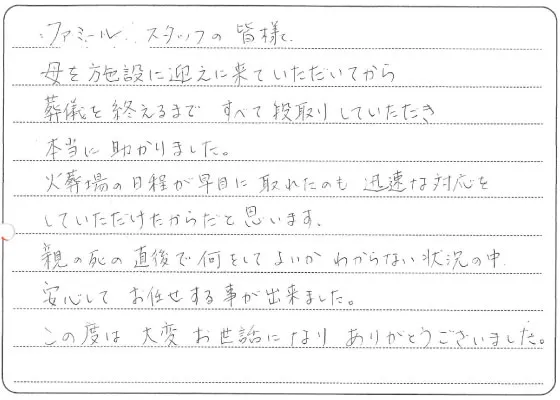 ファミール スタッフの 皆様へ
母を施設に迎えに来ていただいてから
葬儀を終えるまで すべて段取りしていただき
本当に助かりました。
火葬場の日程が早目に取れたのも 迅速な対応を
していただけたからだと思います。
親の死の直後で何をしてよいか わからない状況の中
安心して お任せする事が出来ました。
この度は 大変 お世話になり ありがとうございました。